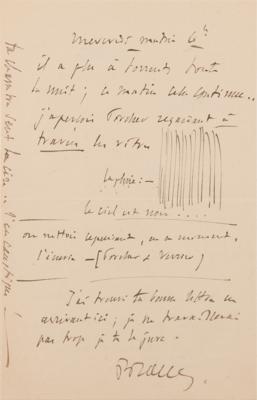 Mercredi matin 6h
il a plu à torrents toute
la nuit ; ce matin cela continue..
j'aperçois Porcher regardant à
travers les vitres
la pluie :—
le ciel est noir . . . .
on nettoie cependant, en ce moment,
l'écurie — (Porcher &
J'ai trouvé ta bonne lettre en
arrivant ici ; je ne travaillerai
pas trop je te le jure.
ta chambre sent la cire